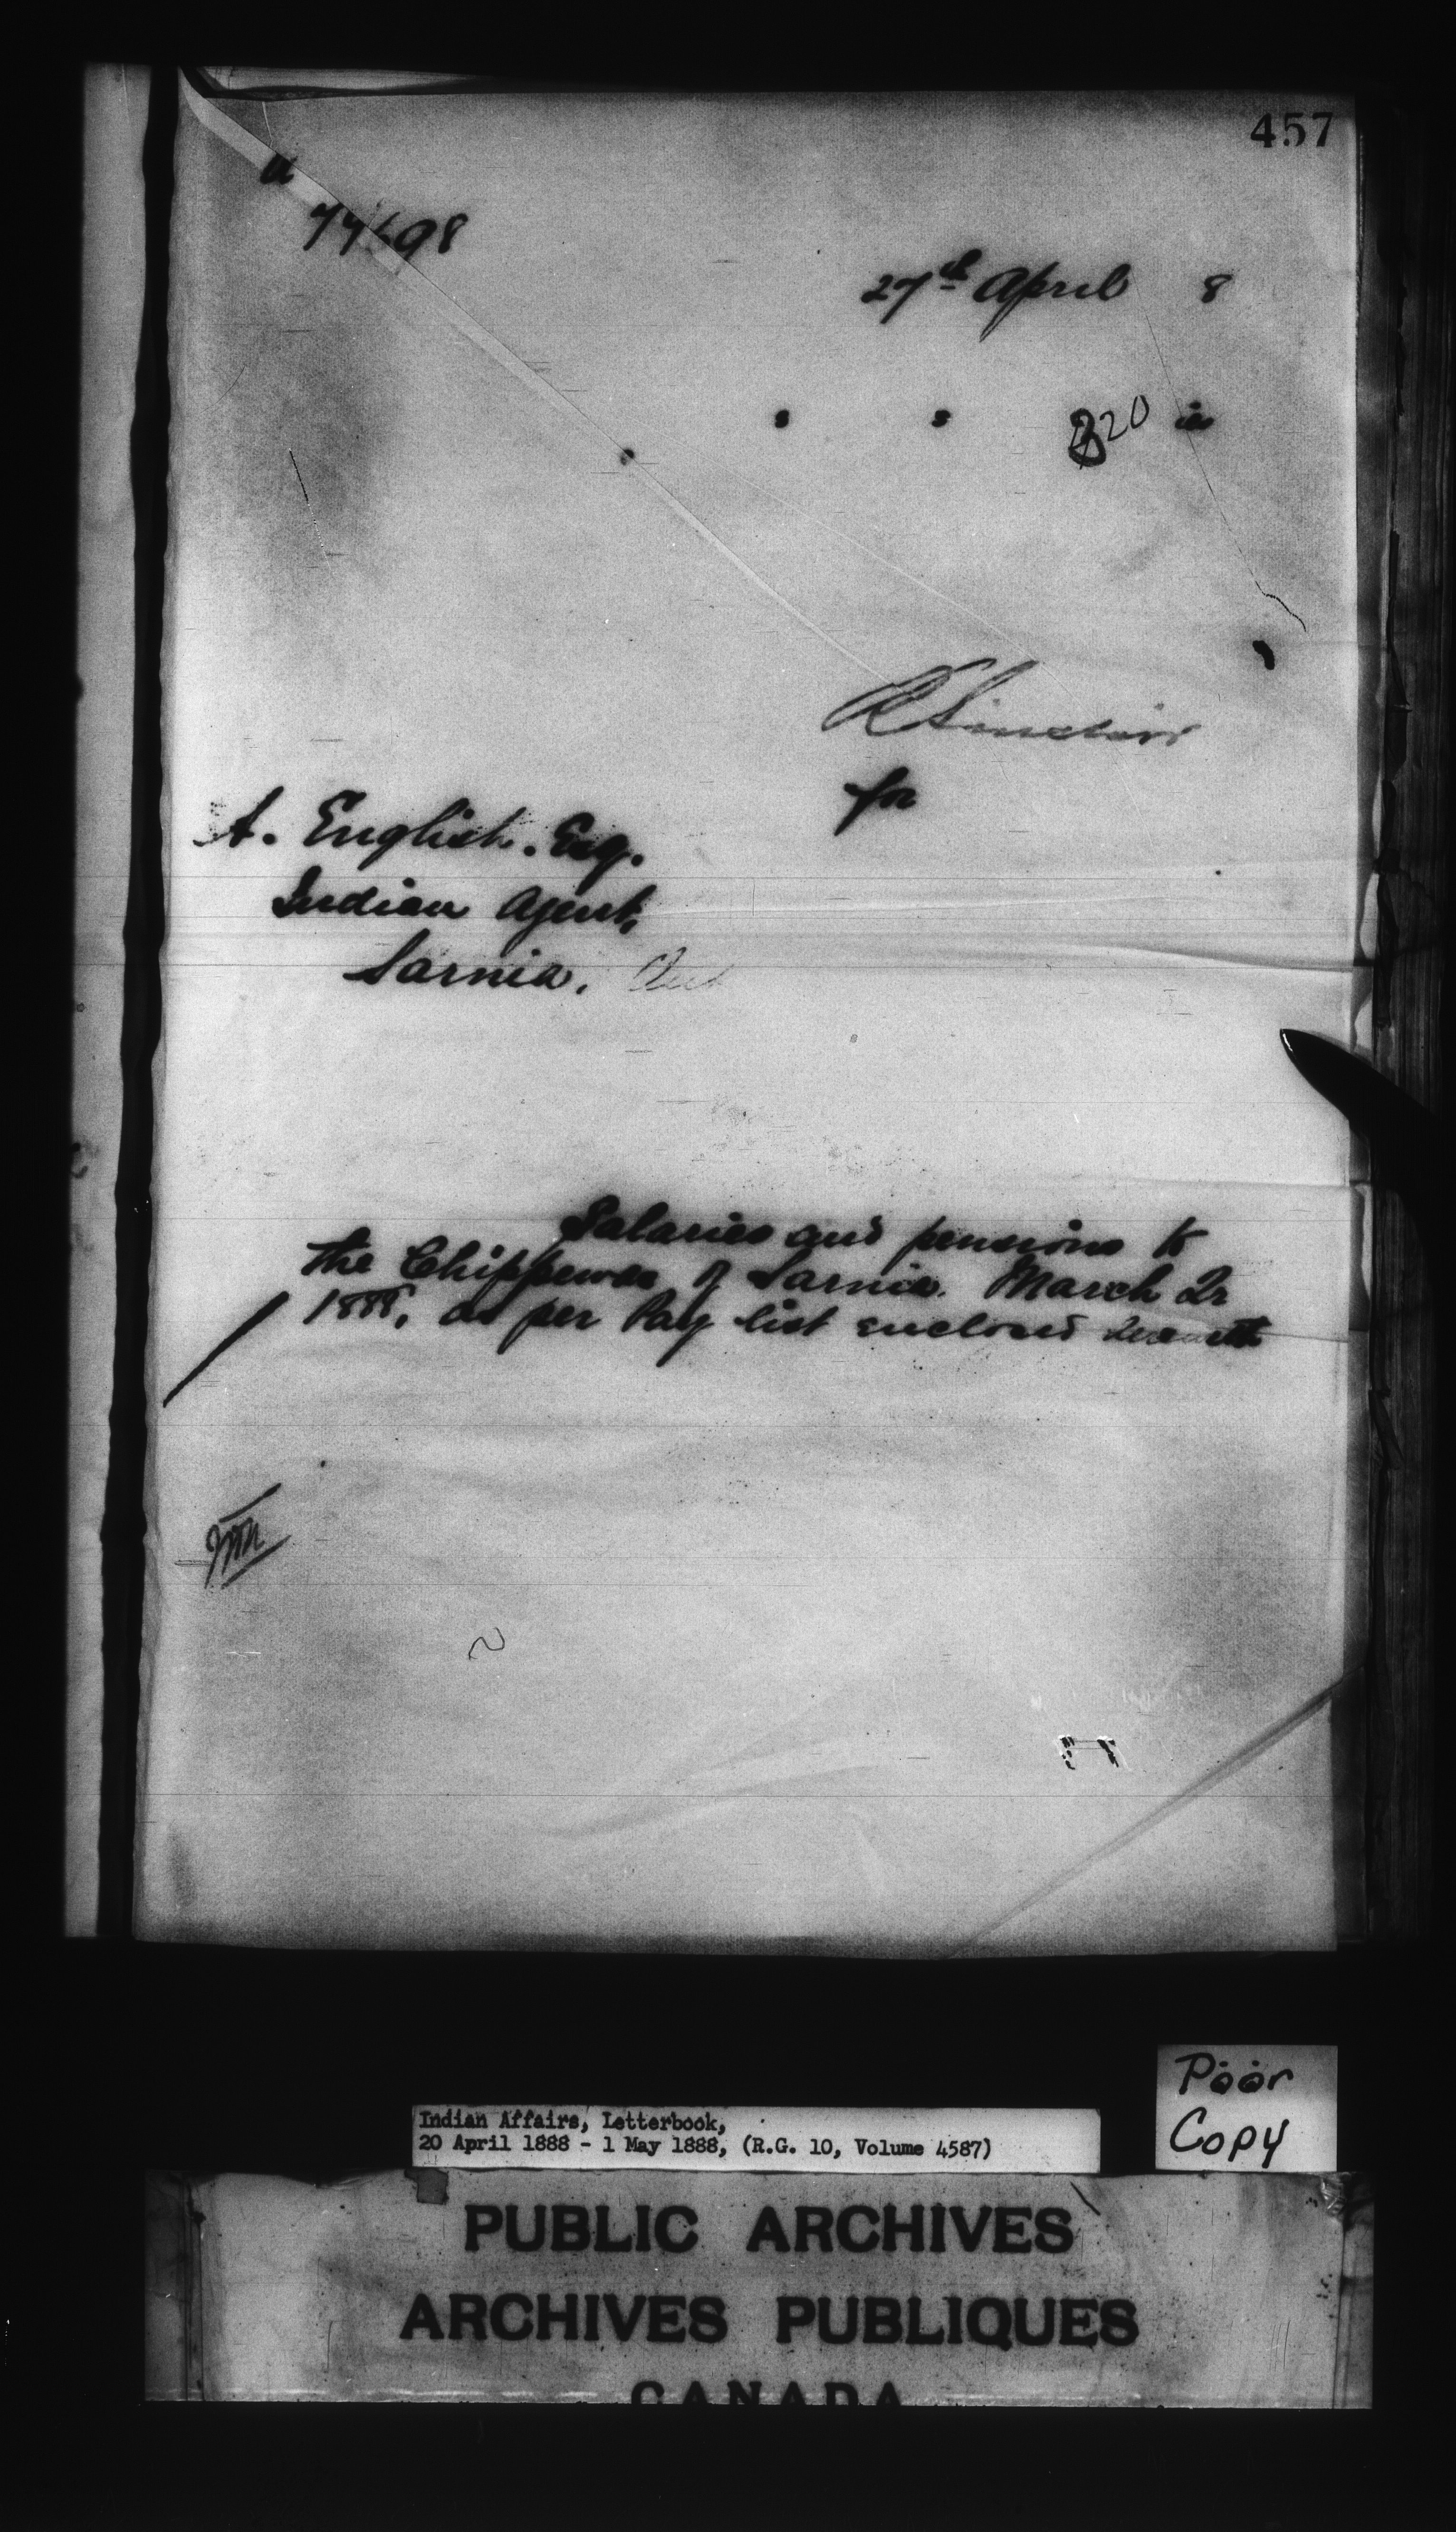 457
77698
27th April 8
s s 320 is
R Sinclair
for
A. English. Esq.
Indian Agent,
Sarnia. Ont
Salaries and pensions to
the Chippewas of Sarnia. March Qr
1888, as per Pay list enclosed herewith
Poor
Copy
Indian Affairs, Letterbook,
20 April 1888 - 1 May 1888, (R.G. 10, Volume 4587)
PUBLIC ARCHIVES
ARCHIVES PUBLIQUES
CANADA